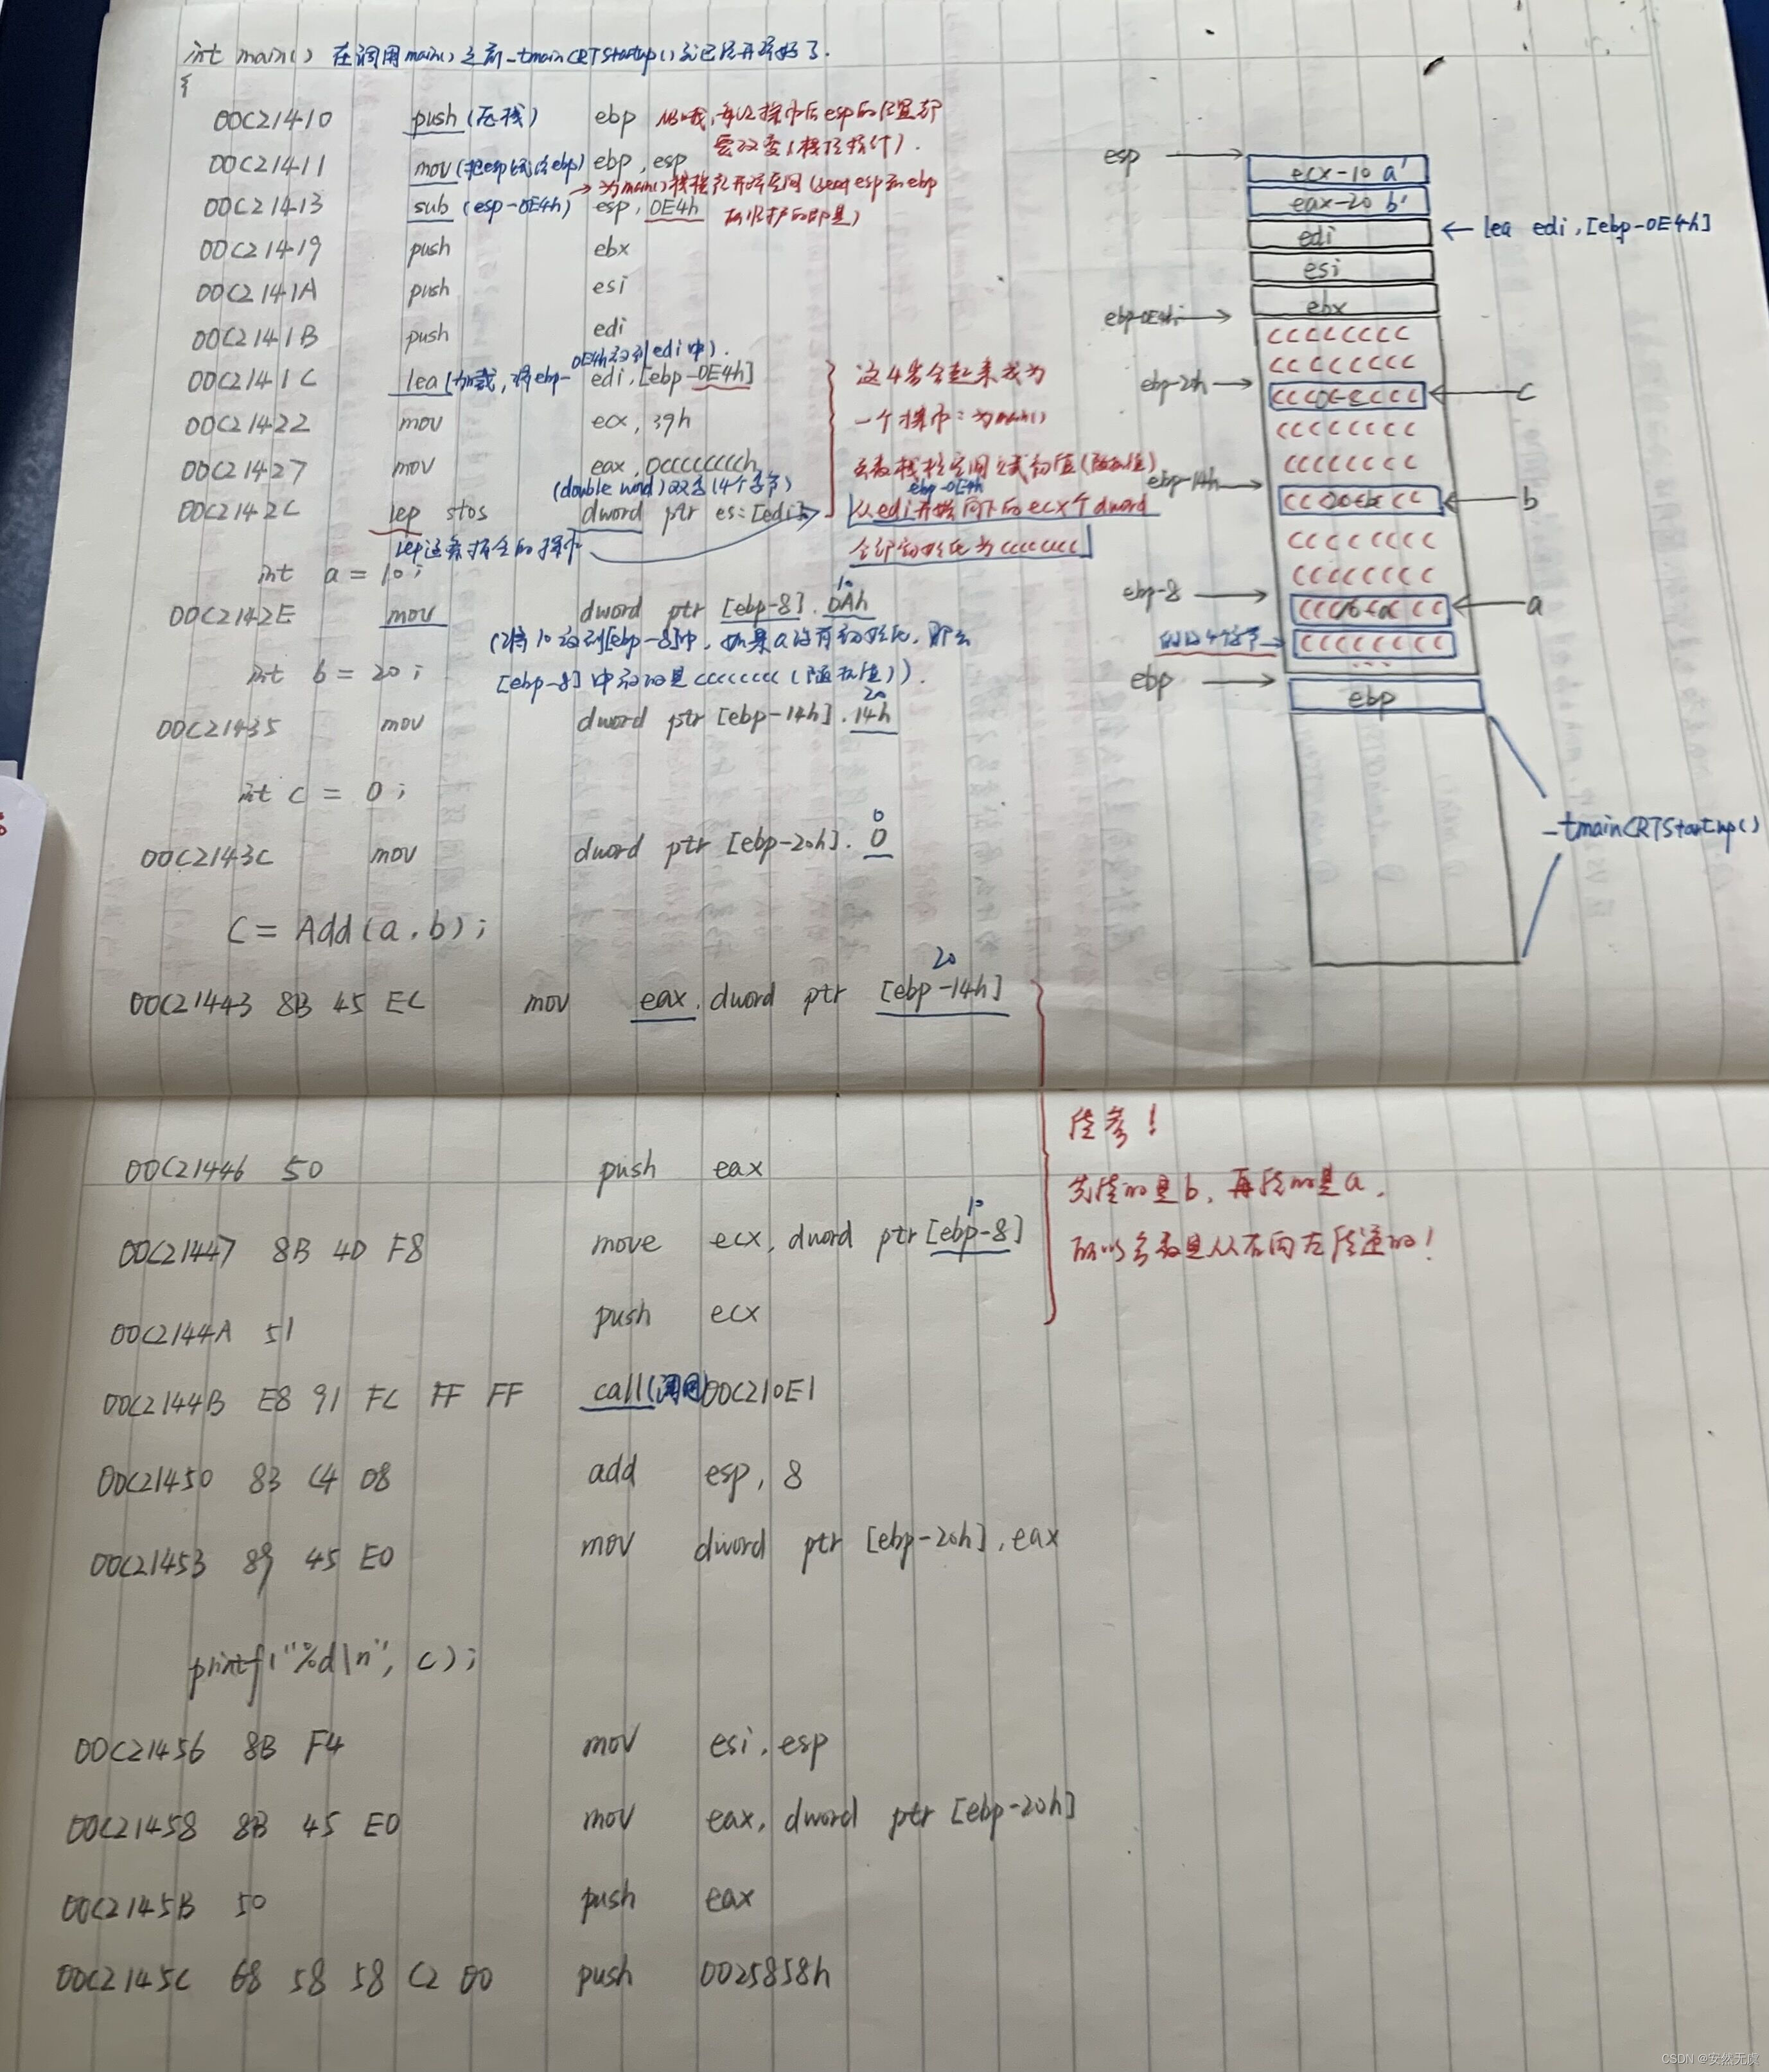 int main() 在调用main()之前_tmainCRTStartup()就已经开辟好了.
{
00C21410 push(压栈) ebp
00C21411 mov(把esp赋给ebp) ebp, esp 要改变(栈顶指针).
00C21413 sub (esp-0E4h) esp, 0E4h → 为main()栈帧
00C21419 push ebx
00C2141A push esi
00C2141B push edi
0E4h放到edi中).
00C2141C lea(加载,将ebp- edi,[ebp-0E4h]
00C21422 mov ecx, 39h
00C21427 mov eax, 0CCCCCCCCh
(double word)双字(4个字节)
00C2142C lep stos dword ptr es:[edi]
这4步合起来成为
一个操作:为main()
函数栈帧空间赋初值(随机值)
ebp-0E4h
从edi开始向下的ecx个dword
全部初始化为CCCCCCCC
lep这条指令的操作
int a = 10;
10
00C2142E mov dword ptr [ebp-8]. 0Ah
(将10放到[ebp-8]中, 如果a没有初始化, 那么
int b = 20;
[ebp-8]中放的是CCCCCCCC(随机值)).
20
00C21435 mov dword ptr [ebp-14h]. 14h
int c = 0;
0
00C2143C mov dword ptr [ebp-20h]. 0
C = Add(a,b);
20
00C21443 8B 45 EC mov eax, dword ptr [ebp-14h]
00C21446 50 push eax
10
00C21447 8B 4D F8 move ecx, dword ptr [ebp-8]
00C2144A 51 push ecx
传参!
先传的是b, 再传的是a,
所以参数是从右向左传递的!
00C2144B E8 91 FC FF FF call(调用)00C210E1
00C21450 83 C4 08 add esp, 8
00C21453 89 45 E0 mov dword ptr [ebp-20h], eax
printf("%d\n", c);
00C21456 8B F4 mov esi, esp
00C21458 8B 45 E0 mov eax, dword ptr [ebp-20h]
00C2145B 50 push eax
00C2145C 68 58 58 C2 00 push 0025858h
esp
ecx-10 a'
eax-20 b'
edi
← lea edi,[ebp-0E4h]
esi
ebx
ebp-0E4h
CCCCCCCC
CCCCCCCC
ebp-20h
c
CCCCCCCC
CCCCCCCC
ebp-14h
b
CCCCCCCC
CCCCCCCC
ebp-8
a
CCCCCCCC
...
ebp
ebp
_tmainCRTStartup()
CSDN @安然无虞